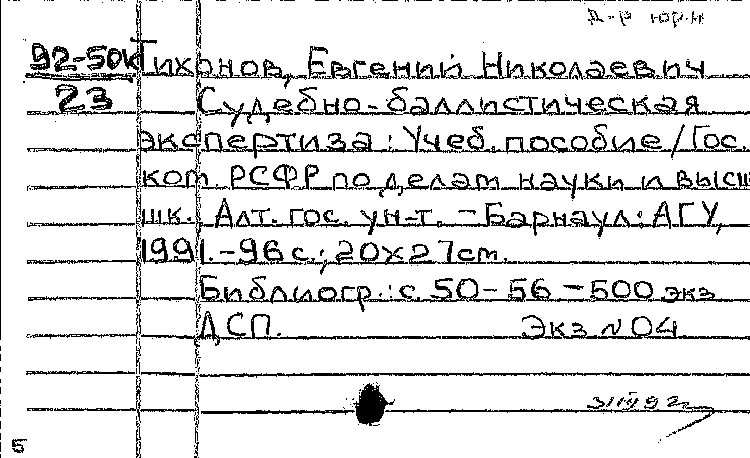 д-р юр.н
92-50к Тихонов, Евгений Николаевич
23 Судебно-баллистическая
экспертиза: Учеб. пособие / Гос.
ком. РСФР по делам науки и высш
шк. Алт. гос. ун-т. - Барнаул: АГУ,
1991. - 96 с.; 20х27 см.
Библиогр.: с. 50-56 - 500 экз
ДСП. Экз № 04
5